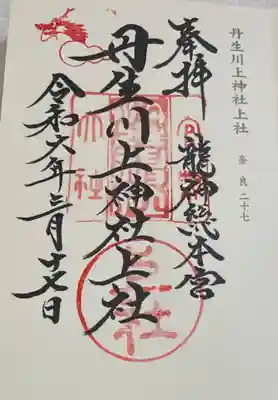 丹生川上神社上社
奈良 二十七
奉拝
龍神総本宮
丹生川上神社上社
令和六年三月十七日